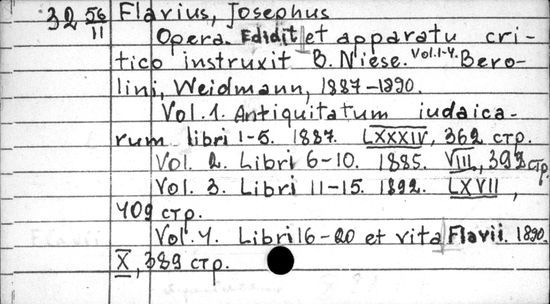 32 56/11 Flavius, Josephus
Opera. Edidit et apparatu cri-
tico instruxit B. Niese. Vol. 1-4. Bero-
lini, Weidmann, 1887-1890.
Vol. 1. Antiquitatum iudaica-
rum libri 1-5. 1887. LXXXIV, 362 стр.
Vol. 2. Libri 6-10. 1885. VIII, 392 стр.
Vol. 3. Libri 11-15. 1892. LXVII,
409 стр.
Vol. 4. Libri 16-20 et vita Flavii. 1890.
X, 389 стр.